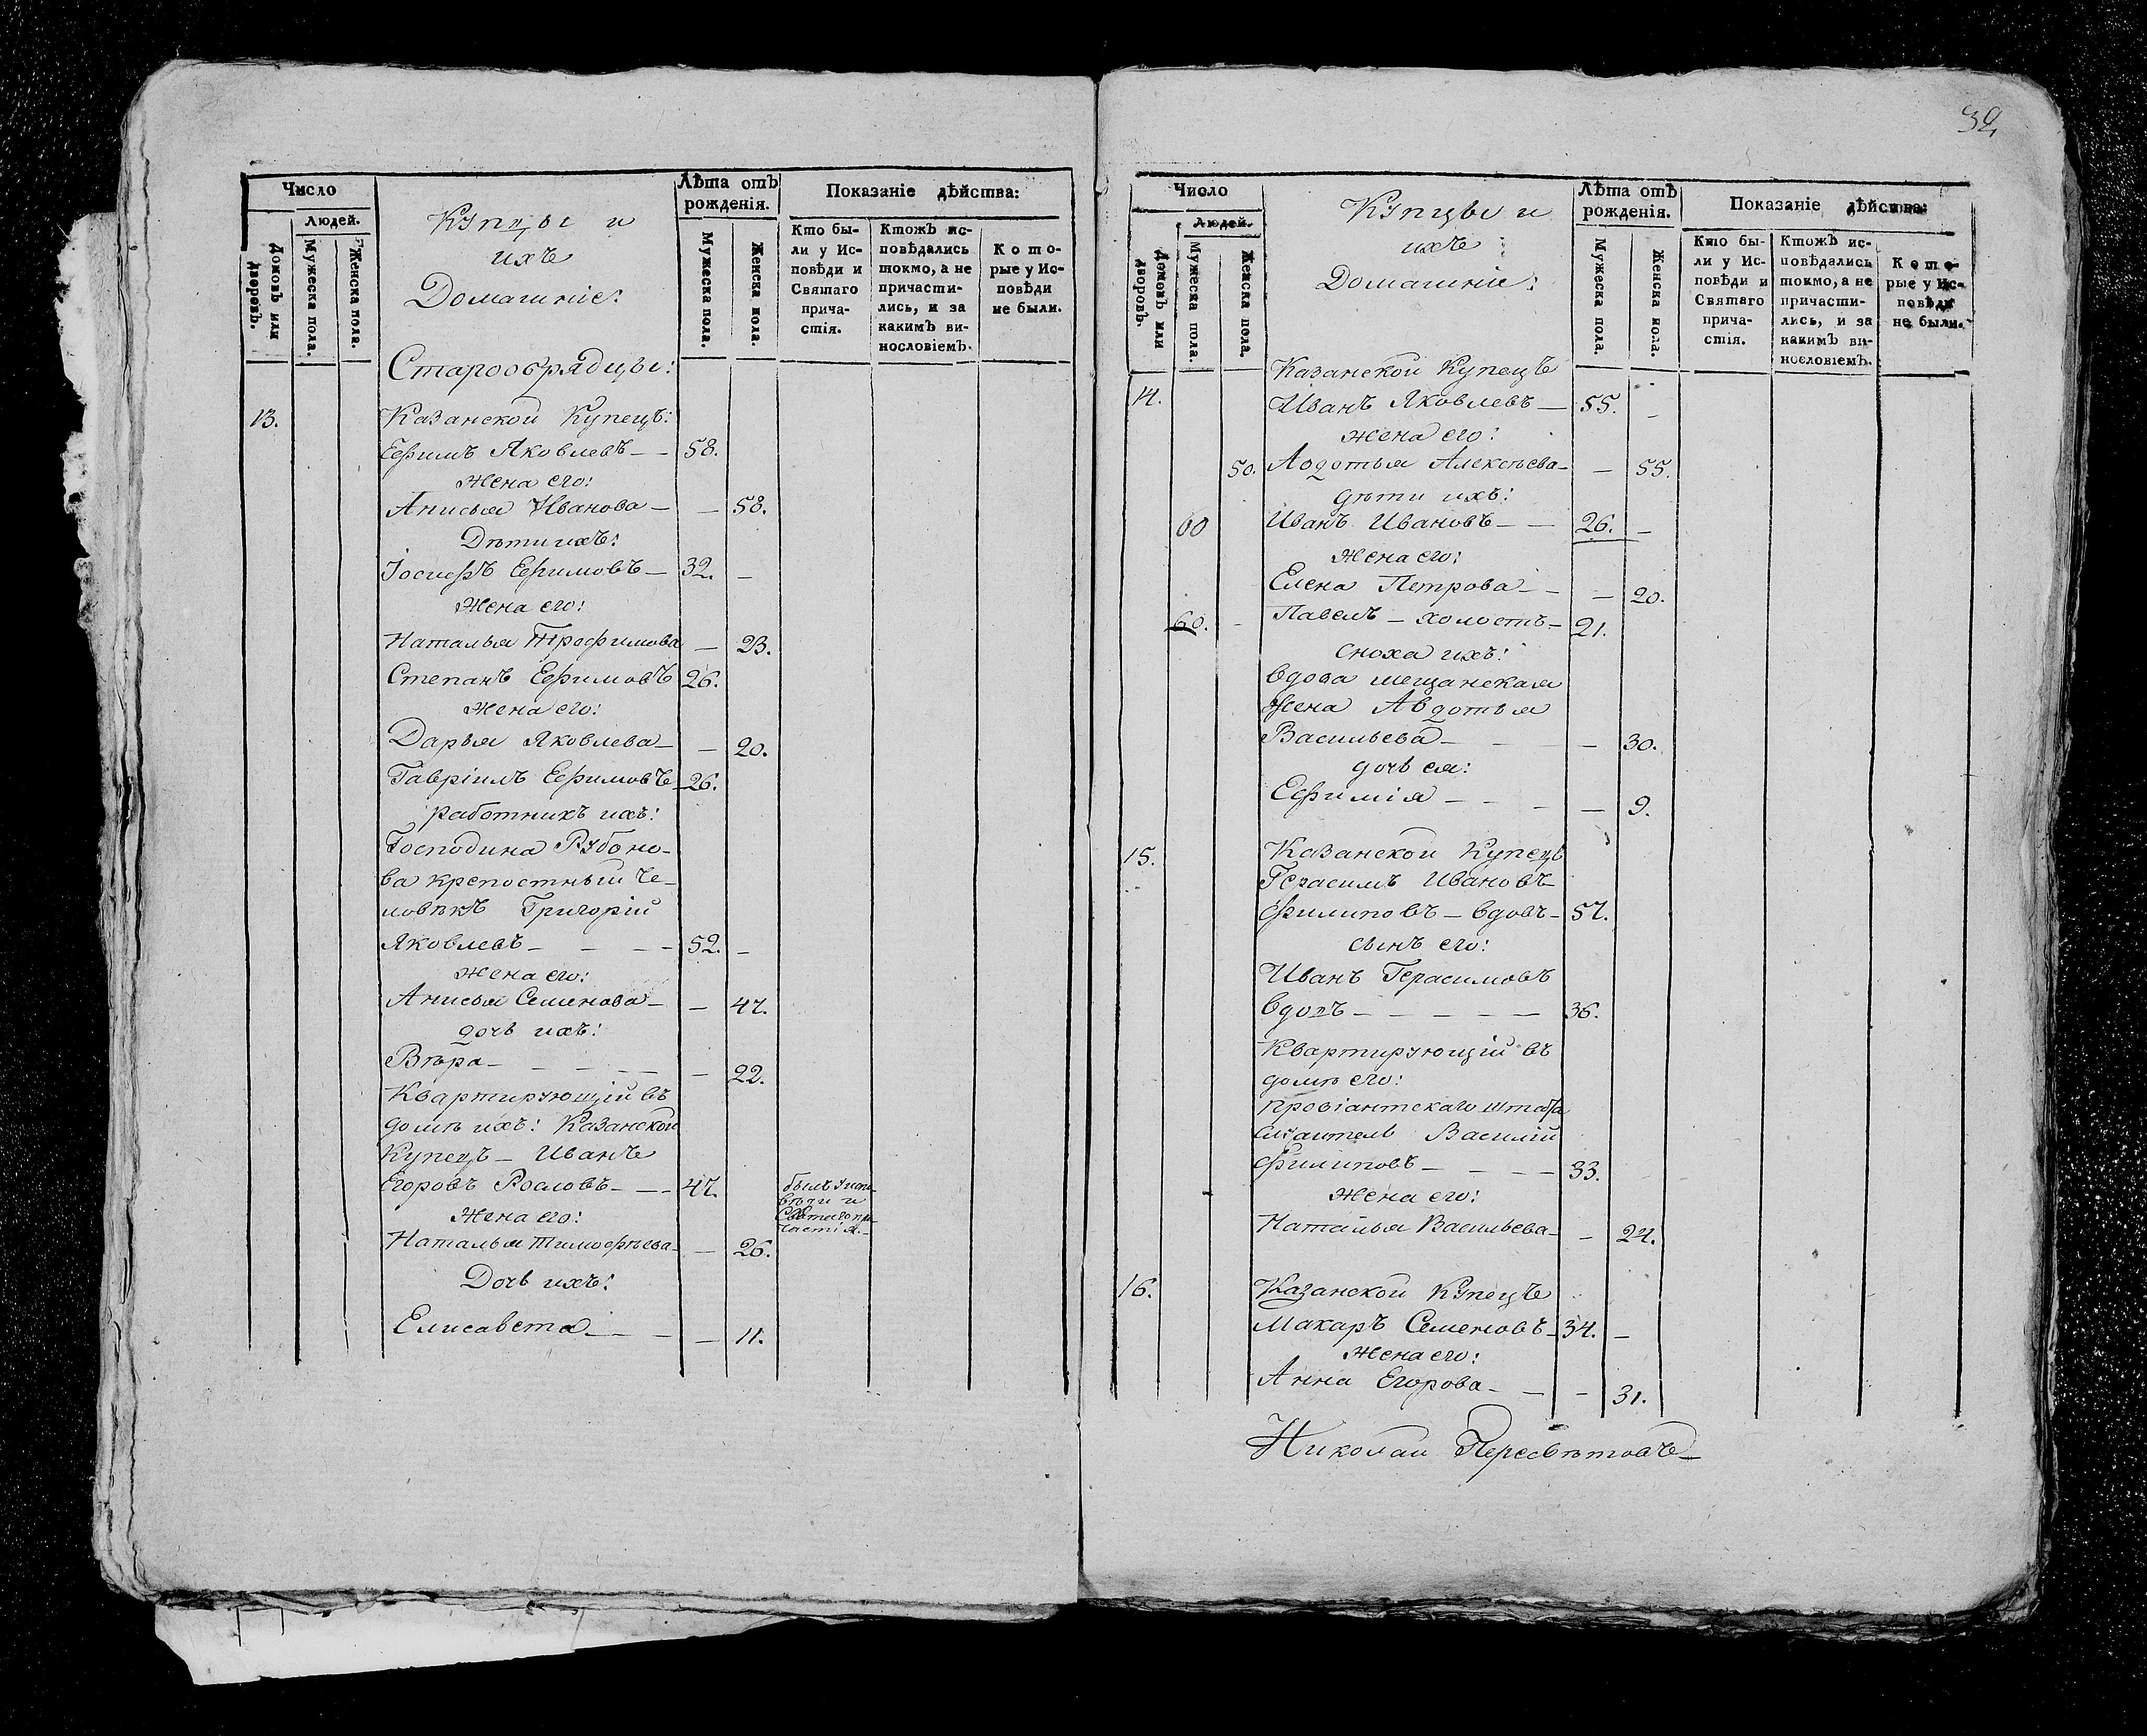 Число
Людей.
Домовъ или дворовъ.
Мужеска пола.
Женска пола.
Купцы и
ихъ
Домашніе:
Лѣта отъ
рожденія.
Мужеска пола.
Женска пола.
Показаніе дѣйства:
Кто бы-
ли у Ис-
повѣди и
Святаго
прича-
стія.
Ктожъ ис-
повѣдались
токмо, а не
причасти-
лись, и за
какимъ ви-
нословіемъ.
Кото-
рые у Ис-
повѣди
не были.
Старообрядцы:
13. Казанской Купецъ:
Ефимъ Яковлевъ — — 58.
Жена его:
Анисья Иванова — — 58.
Дѣти ихъ:
Іосифъ Ефимовъ — 32. —
Жена его:
Наталья Трофимова — 23.
Степанъ Ефимовъ 26.
Жена его:
Дарья Яковлева — — 20.
Гавріилъ Ефимовъ — 26.
Работникъ ихъ:
Господина Рубоно-
ва крепостный че-
ловѣкъ Григорій
Яковлевъ — — — — 52. —
Жена его:
Анисья Семенова — — 47.
дочь ихъ:
Вѣра — — — — — — 22.
Квартирующій въ
домѣ ихъ: Казанской
Купецъ — Иванъ
Егоровъ Рословъ — — - 47. былъ у испо-
вѣди и
Святаго при-
частія. —
Жена его:
Наталья Тимофѣева — — 26.
Дочь ихъ:
Елисавета — — — — 11.
32
Число
Людей.
Домовъ или дворовъ.
Мужеска пола.
Женска пола.
Купцы и
ихъ
Домашніе:
Лѣта отъ
рожденія.
Мужеска пола.
Женска пола.
Показаніе дѣйства:
Кто бы-
ли у Ис-
повѣди и
Святаго
прича-
стія.
Ктожъ ис-
повѣдались
токмо, а не
причасти-
лись, и за
какимъ ви-
нословіемъ.
Кото-
рые у Ис-
повѣди
не были.
Казанской Купецъ
14. Иванъ Яковлевъ — 55. —
Жена его:
50. Авдотья Алексѣева — — 55.
дѣти ихъ:
60 Иванъ Ивановъ — — 26. —
Жена его:
Елена Петрова — — — 20.
60. - Павелъ — холостъ — 21.
Сноха ихъ:
вдова мещанская
Жена Авдотья
Васильева — — — — 30.
дочь ея:
Ефимія — — — — 9.
15. Казанской Купецъ
Герасимъ Ивановъ
Филиповъ — вдовъ — 57.
сынъ его:
Иванъ Герасимовъ
вдовъ — — — — — 36.
Квартирующій въ
домѣ его:
Провіантскаго штата
Василій
Филиповъ — — — — 33.
Жена его:
Наталья Васильева — — 24.
16. Казанской Купецъ
Макаръ Семеновъ — 34. —
Жена его:
Анна Егорова — — — 31.
Николай Пересвѣтовъ —